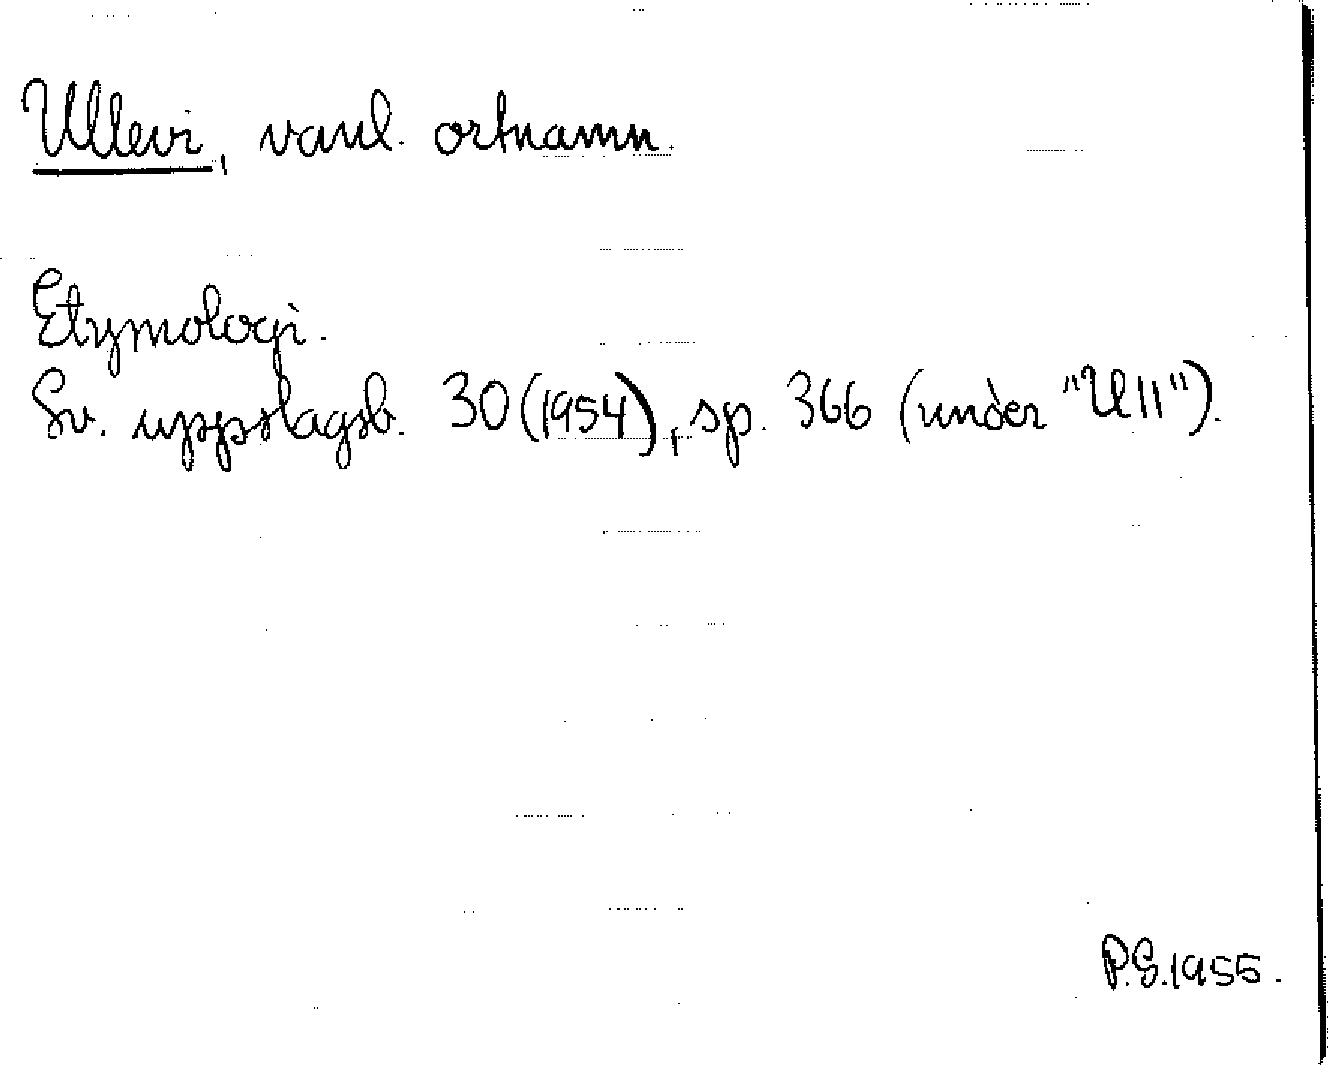 Ullevi, vanl. ortnamn.
Etymologi.
Sv. uppslagsb. 30(1954), sp. 366 (under "Ull").
P.S.1955.